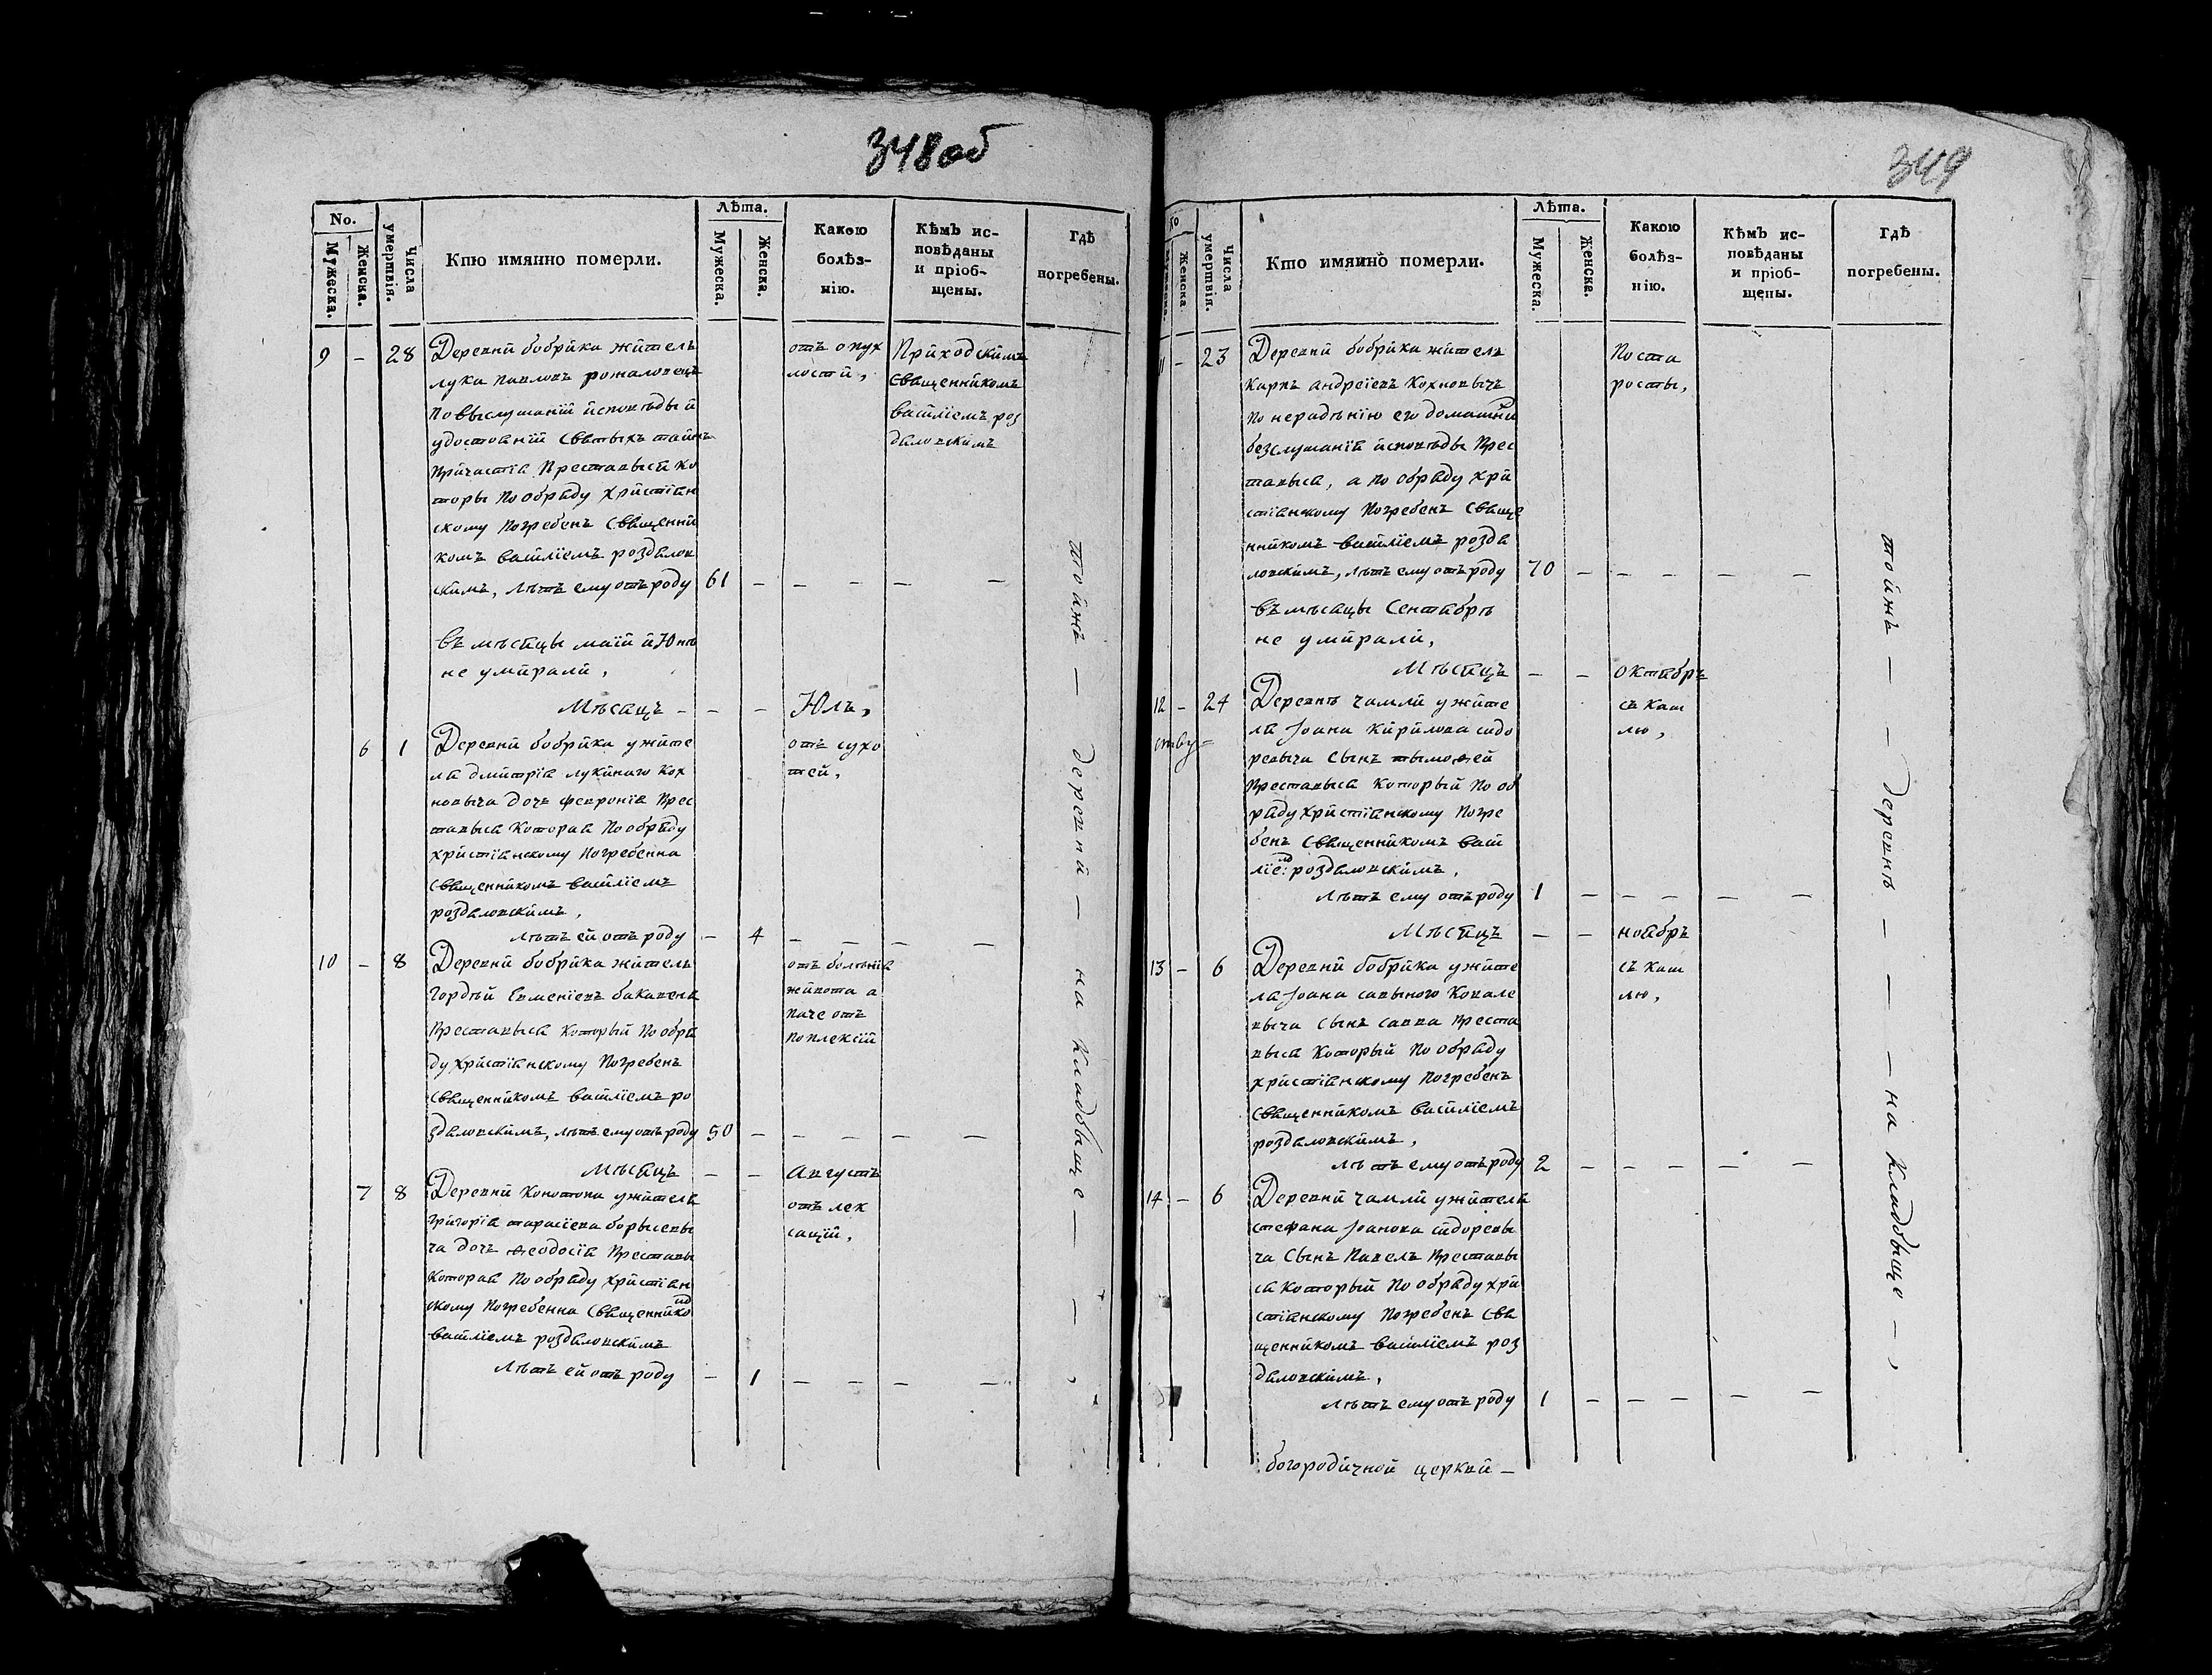 348 об
No.
Мужеска.
Женска.
Числа умертвія.
Кто имянно померли.
Лѣта.
Мужеска.
Женска.
Какою болѣз-
нію.
Кѣмъ ис-
повѣданы
и пріоб-
щены.
Гдѣ
погребены.
9 – 28 Деревни бобрика житель
лука павловъ рожаловецъ
по выслушаніи исповѣды и
удостоеніи святыхъ тайнъ
причастія преставыся ко
торы по обряду христіан
скому погребенъ священни
комъ василіемъ роздялов
скимъ, лѣтъ ему отъ роду 61 – – – – –
отъ опух
лости,
Приходскимъ
священникомъ
василіемъ роз
дяловскимъ
въ мѣсяцы маіи и Юнѣ
не умирали,
Мѣсяцъ – – – Юль,
6 1 Деревни бобрика ужите
ля дмитрія лукиного кох
новыча дочь февронія прес
тавыся которая по обряду
христіанскому погребенна
священникомъ василіемъ
роздяловскимъ,
лѣтъ ей отъ роду – 4 – – – –
отъ сухо
тей,
10 – 8 Деревни бобрика житель
гордѣй евменіевъ
преставыся который по обря
ду христіанскому погребенъ
священникомъ василіемъ ро
здяловскимъ, лѣтъ ему отъ роду 50 – – – – –
отъ болѣнія
живота а
паче отъ
поплексіи
Мѣсяцъ – – августъ
7 8 Деревни Конотопа ужителя
григорія тарасіева борысевы
ча дочь ѳеодосія преставы
которая по обряду христіан
скому погребенна священнико м
василіемъ роздяловскимъ
лѣтъ ей отъ роду – 1 – – – –
отъ лек
сацїи,
тойжъ – деревни – на кладбыще – – – ,
349
No
Женска.
Числа умертвія.
Кто имянно померли.
Лѣта.
Мужеска.
Женска.
Какою
болѣз-
нію.
Кѣмъ ис-
повѣданы
и пріоб-
щены.
Гдѣ
погребены.
11 – 23 Деревни бобрика житель
карпъ андреіевъ кохновычъ
по нерадѣнію его домашни
безслушанія исповѣды прес
тавыся, а по обряду хри
стіанскому погребенъ свяще
нникомъ василіемъ роздя
ловскимъ, лѣтъ ему отъ роду 70 – – – – –
по ста
росты,
въ мѣсяцы сентябрѣ
не умирали,
Мѣсяцъ – – октябръ
12 – 24 Деревнѣ чамли ужите
ля Іоана кирилова сидо
ревыча сынъ тымоѳей
преставыся который по об
ряду христіанскому погре
бенъ священникомъ васи
ліе:м роздяловскимъ,
лѣтъ ему отъ роду 1 – – – – –
съ каш
лю,
Мѣсяцъ – – ноябръ
13 – 6 Деревни бобрика ужите
ля Іоана савыного ковале
выча сынъ савва преста
выся который по обряду
христіанскому погребенъ
священникомъ василіемъ
роздяловскимъ,
лѣтъ ему отъ роду 2 – – – – –
съ каш
лю,
14 – 6 Деревни чамли ужителя
стефана Іоанова сидоревы
ча сынъ павелъ преставы
ся который по обряду хри
стіанскому погребенъ свя
щенникомъ василіемъ роз
дяловскимъ,
лѣтъ ему отъ роду 1 – – – – –
тойжъ – – деревнѣ – – – на кладбыще – ,
богородичной церкви –